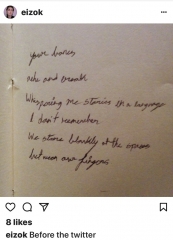 eizok
your bones
ache and tremble
Whispering me stories in a language
I don't remember
We stare blankly at the spaces
between our fingers
8 likes
eizok Before the twitter